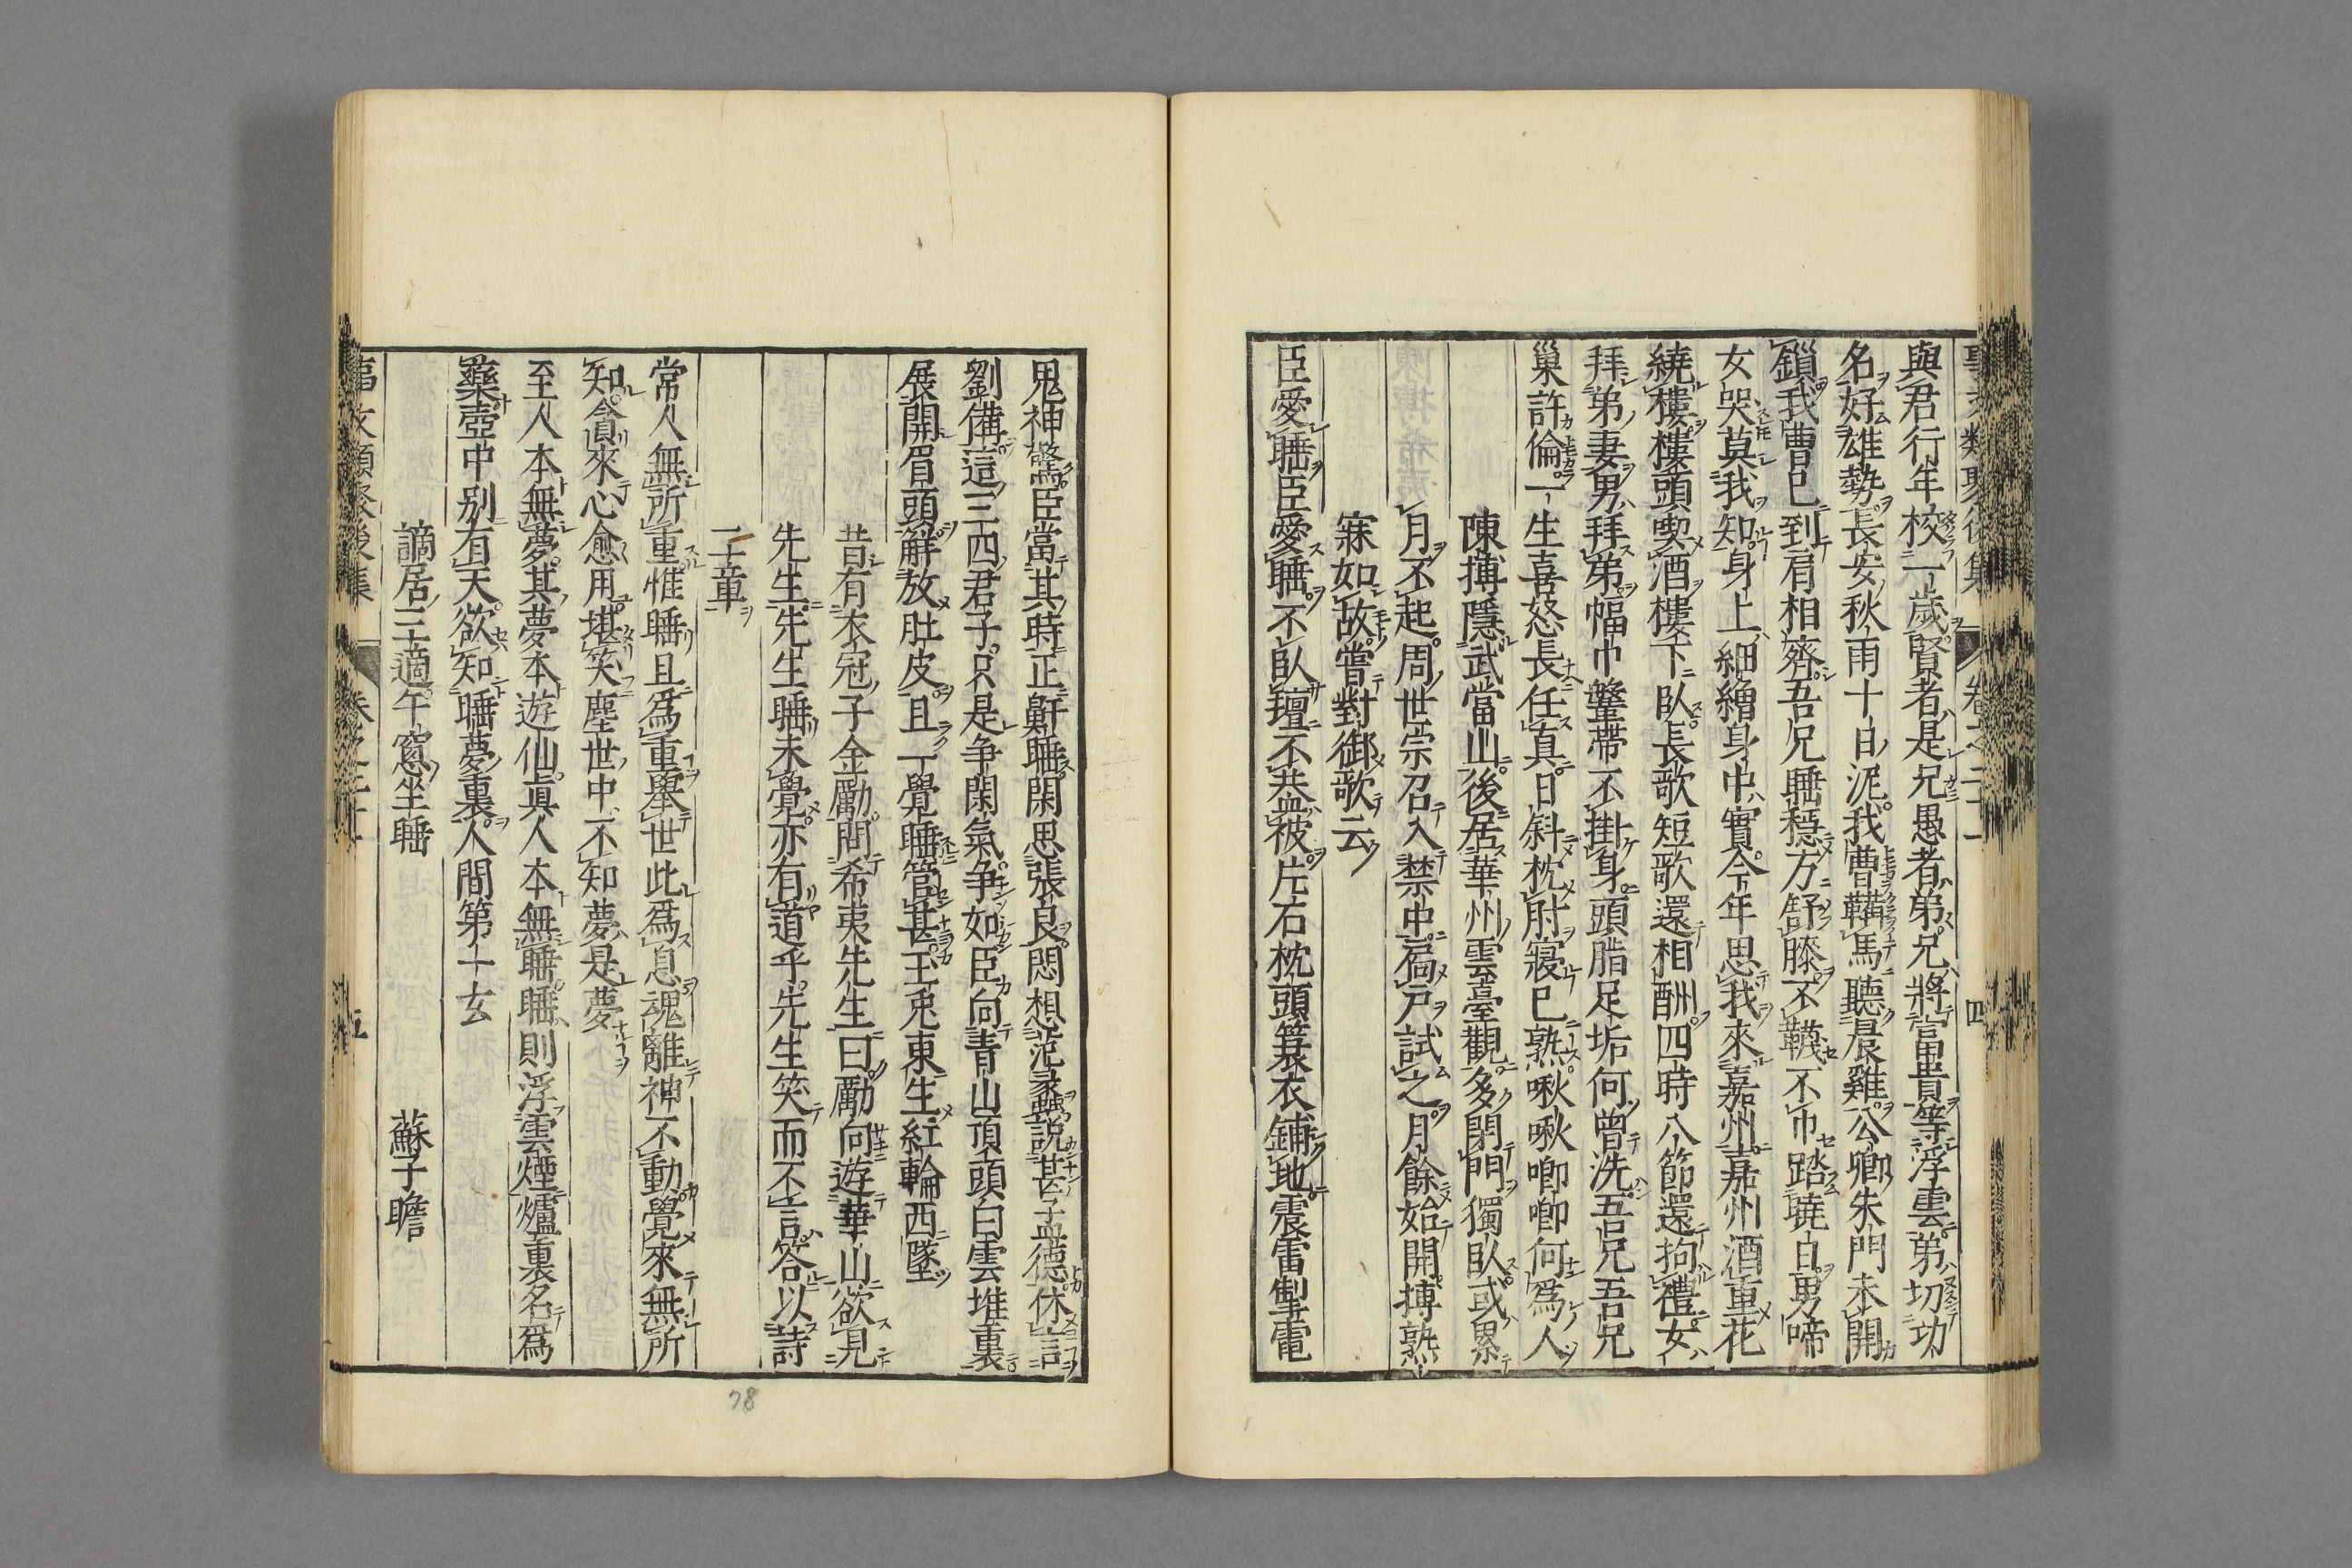 與君行年校一歲賢者是兄愚者弟兄將富貴等浮雲弟切功
名好雄勢長安秋雨十日泥我曹鞴馬聽晨雞公卿朱門未開
鎖我曹已到肩相齊吾兄睡穏方舒膝不韈不巾踏曉日男啼
女哭莫我知身上細繒身中實今年思我來嘉州嘉州酒重花
繞樓樓頭喫酒樓下臥長歌短歌還相酬四時八節還拘禮女
拜弟妻男拜弟幅巾鞶帶不掛身頭脂足垢何曾洗吾兄吾兄
巢許倫一生喜怒長任真日斜枕肘寢已熟啾啾唧唧何爲人
陳摶隱武當山後居華州雲臺觀多閉門獨臥或累
月不起周世宗召入禁中扃戶試之月餘始開摶熟
寐如故嘗對御歌云
臣愛睡臣愛睡不臥氊不共蓋被片石枕頭蓑衣鋪地震雷掣電
鬼神驚臣當其時正鼾睡閑思張良悶想范蠡說甚孟德休言
劉備這三四君子只是争閑氣争如臣向青山頂頭白雲堆裏
展開眉頭解放肚皮且一覺睡管甚玉兎東生紅輪西墜
昔有衣冠子金勵問希夷先生曰勵向遊華山欲見
先生先生睡未覺亦有道乎先生笑而不言答以詩
二章
常人無所重惟睡且爲重舉世此爲息魂離神不動覺來無所
知貪來心愈用堪笑塵世中不知夢是夢
至人本無夢其夢本遊仙真人本無睡睡則浮雲煙爐裏名爲
藥壺中别有天欲知睡夢裏人間第一玄
謫居三適午窓坐睡　蘇子瞻
五
78